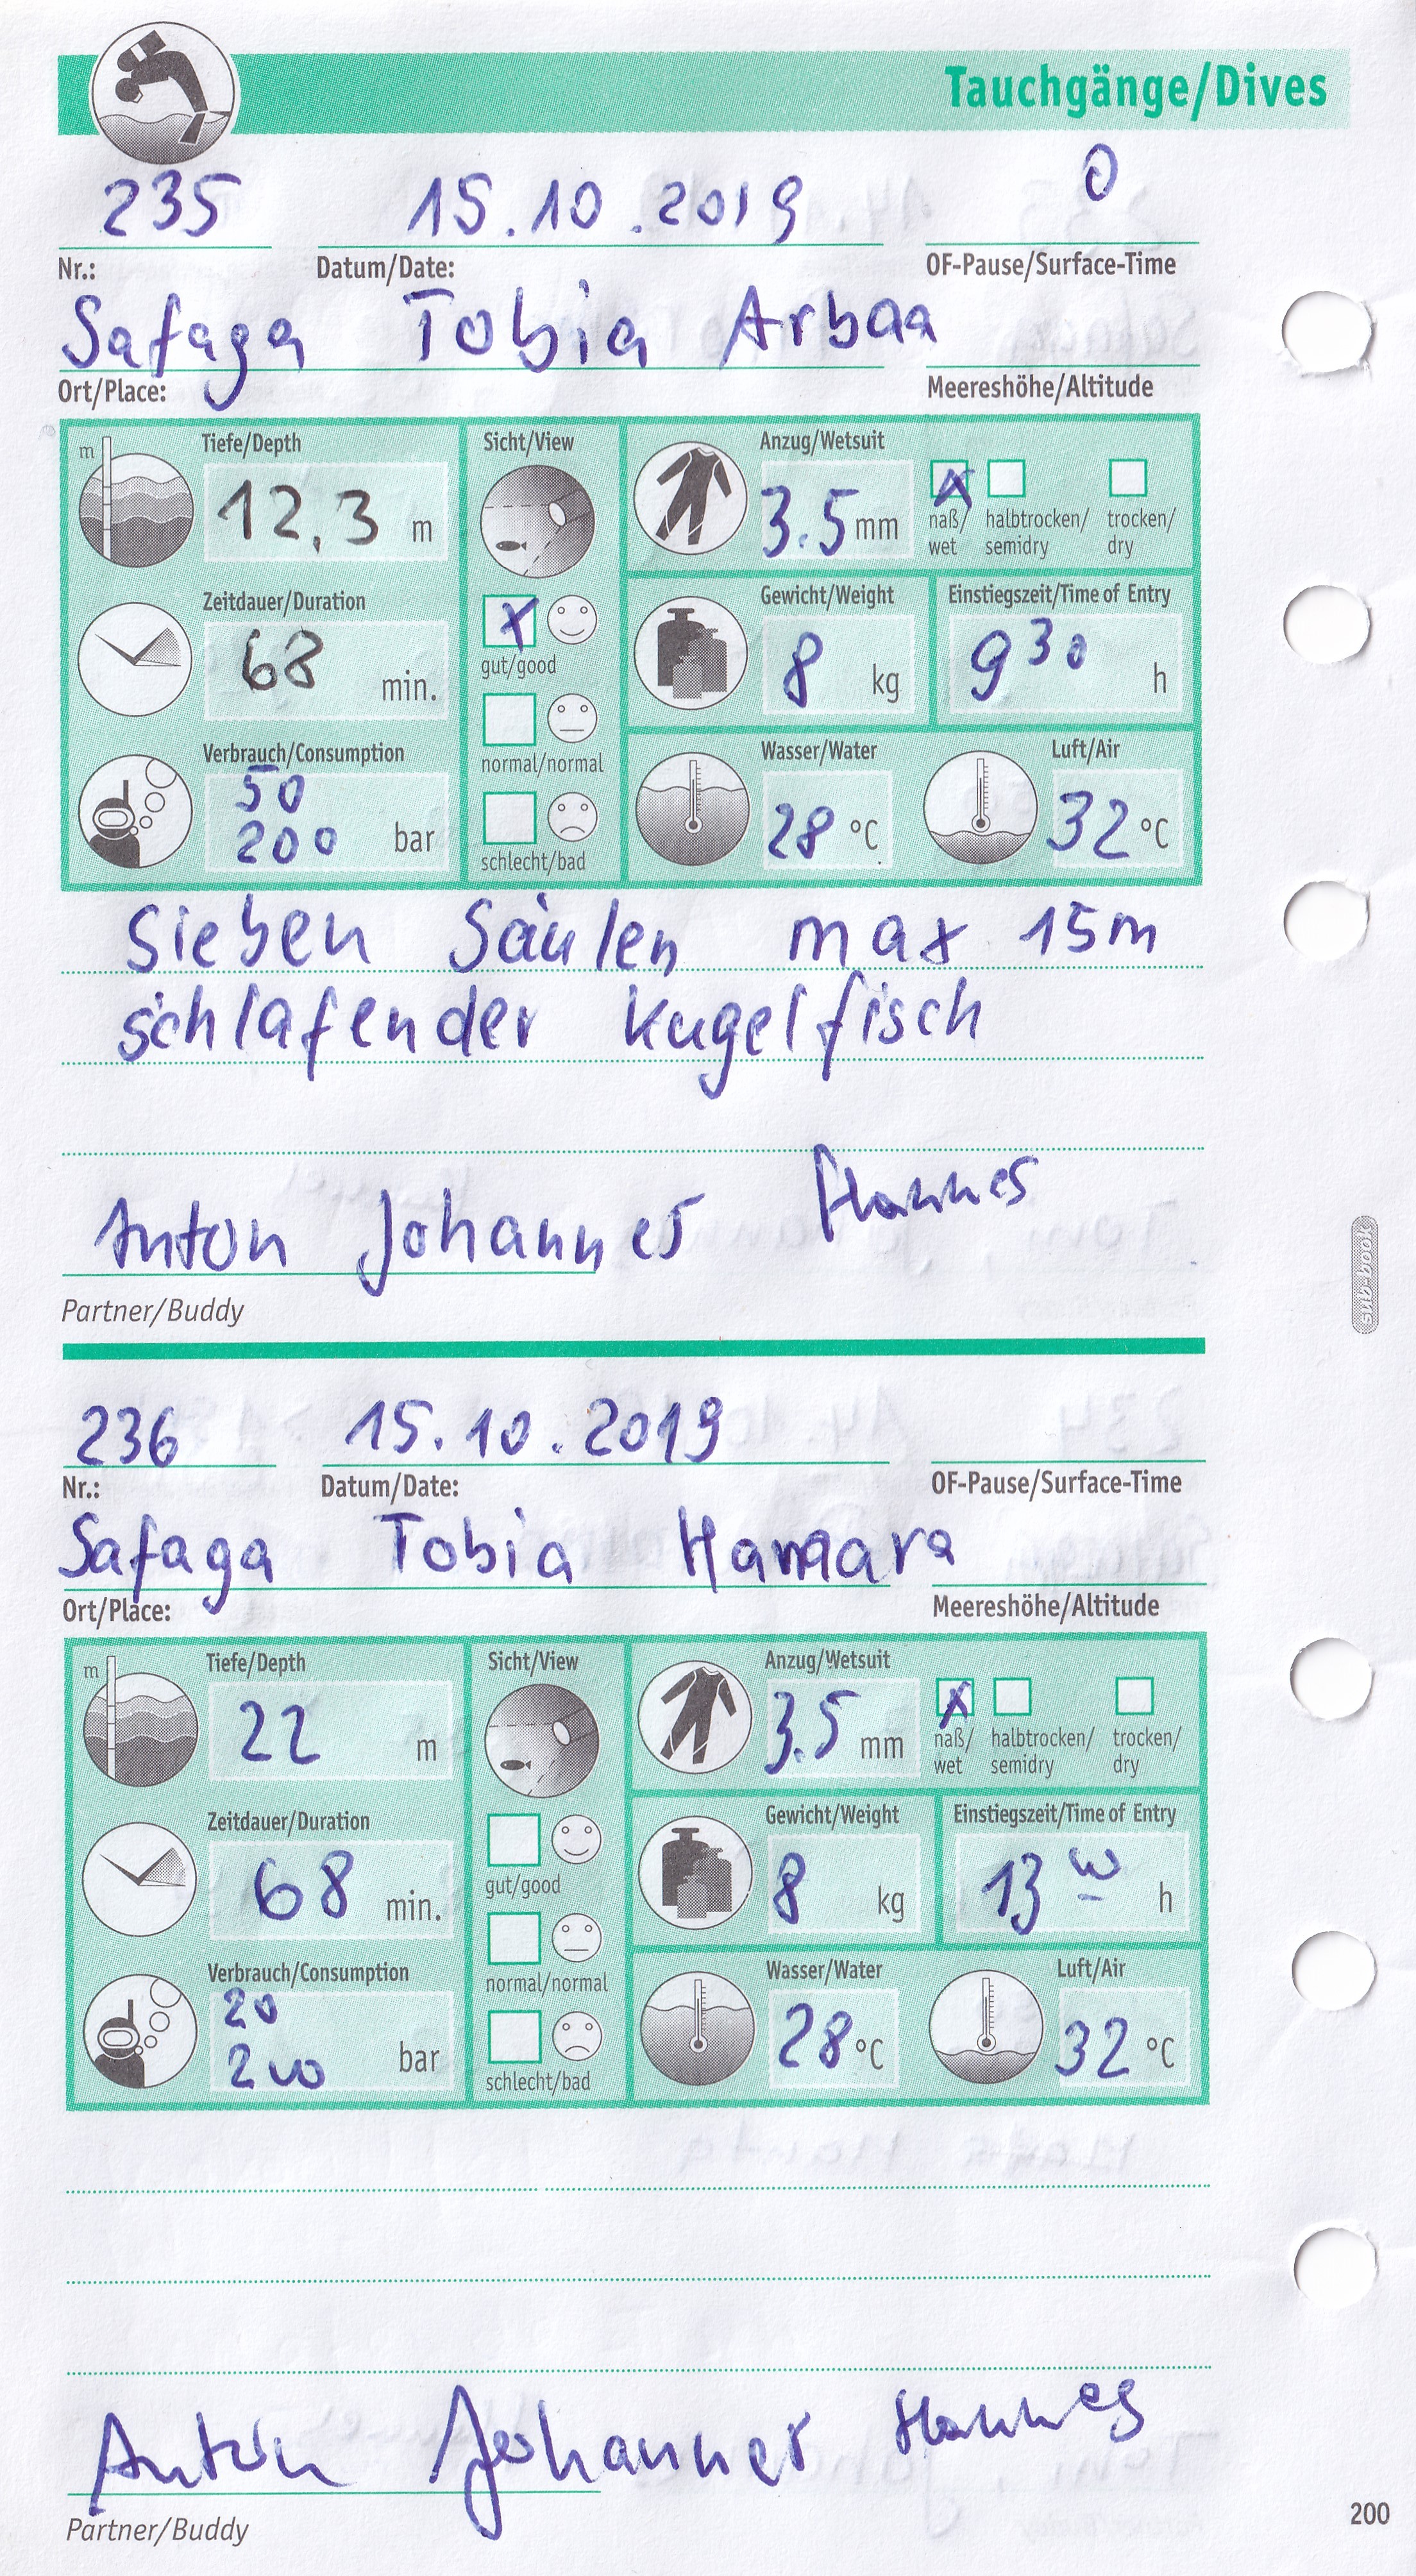 Tauchgänge/Dives
235 15.10.2019 0
Nr.: Datum/Date: OF-Pause/Surface-Time
Safaga Tobia Arbaa
Ort/Place: Meereshöhe/Altitude
m Tiefe/Depth Sicht/View Anzug/Wetsuit
12,3 m 3.5 mm X
naß/ halbtrocken/ trocken/
wet semidry dry
Zeitdauer/Duration Gewicht/Weight Einstiegszeit/Time of Entry
68 min. X 8 kg 9 30 h
gut/good
Verbrauch/Consumption normal/normal Wasser/Water Luft/Air
50
200 bar 28 °C 32 °C
schlecht/bad
Sieben Säulen max 15m
schlafender Kugelfisch
Anton Johannes Hannes
Partner/Buddy
sub-book
236 15.10.2019
Nr.: Datum/Date: OF-Pause/Surface-Time
Safaga Tobia Hamara
Ort/Place: Meereshöhe/Altitude
m Tiefe/Depth Sicht/View Anzug/Wetsuit
22 m 3.5 mm X
naß/ halbtrocken/ trocken/
wet semidry dry
Zeitdauer/Duration Gewicht/Weight Einstiegszeit/Time of Entry
68 min. 8 kg 13 00 h
gut/good
Verbrauch/Consumption normal/normal Wasser/Water Luft/Air
20
200 bar 28 °C 32 °C
schlecht/bad
Anton Johannes Hannes
Partner/Buddy
200